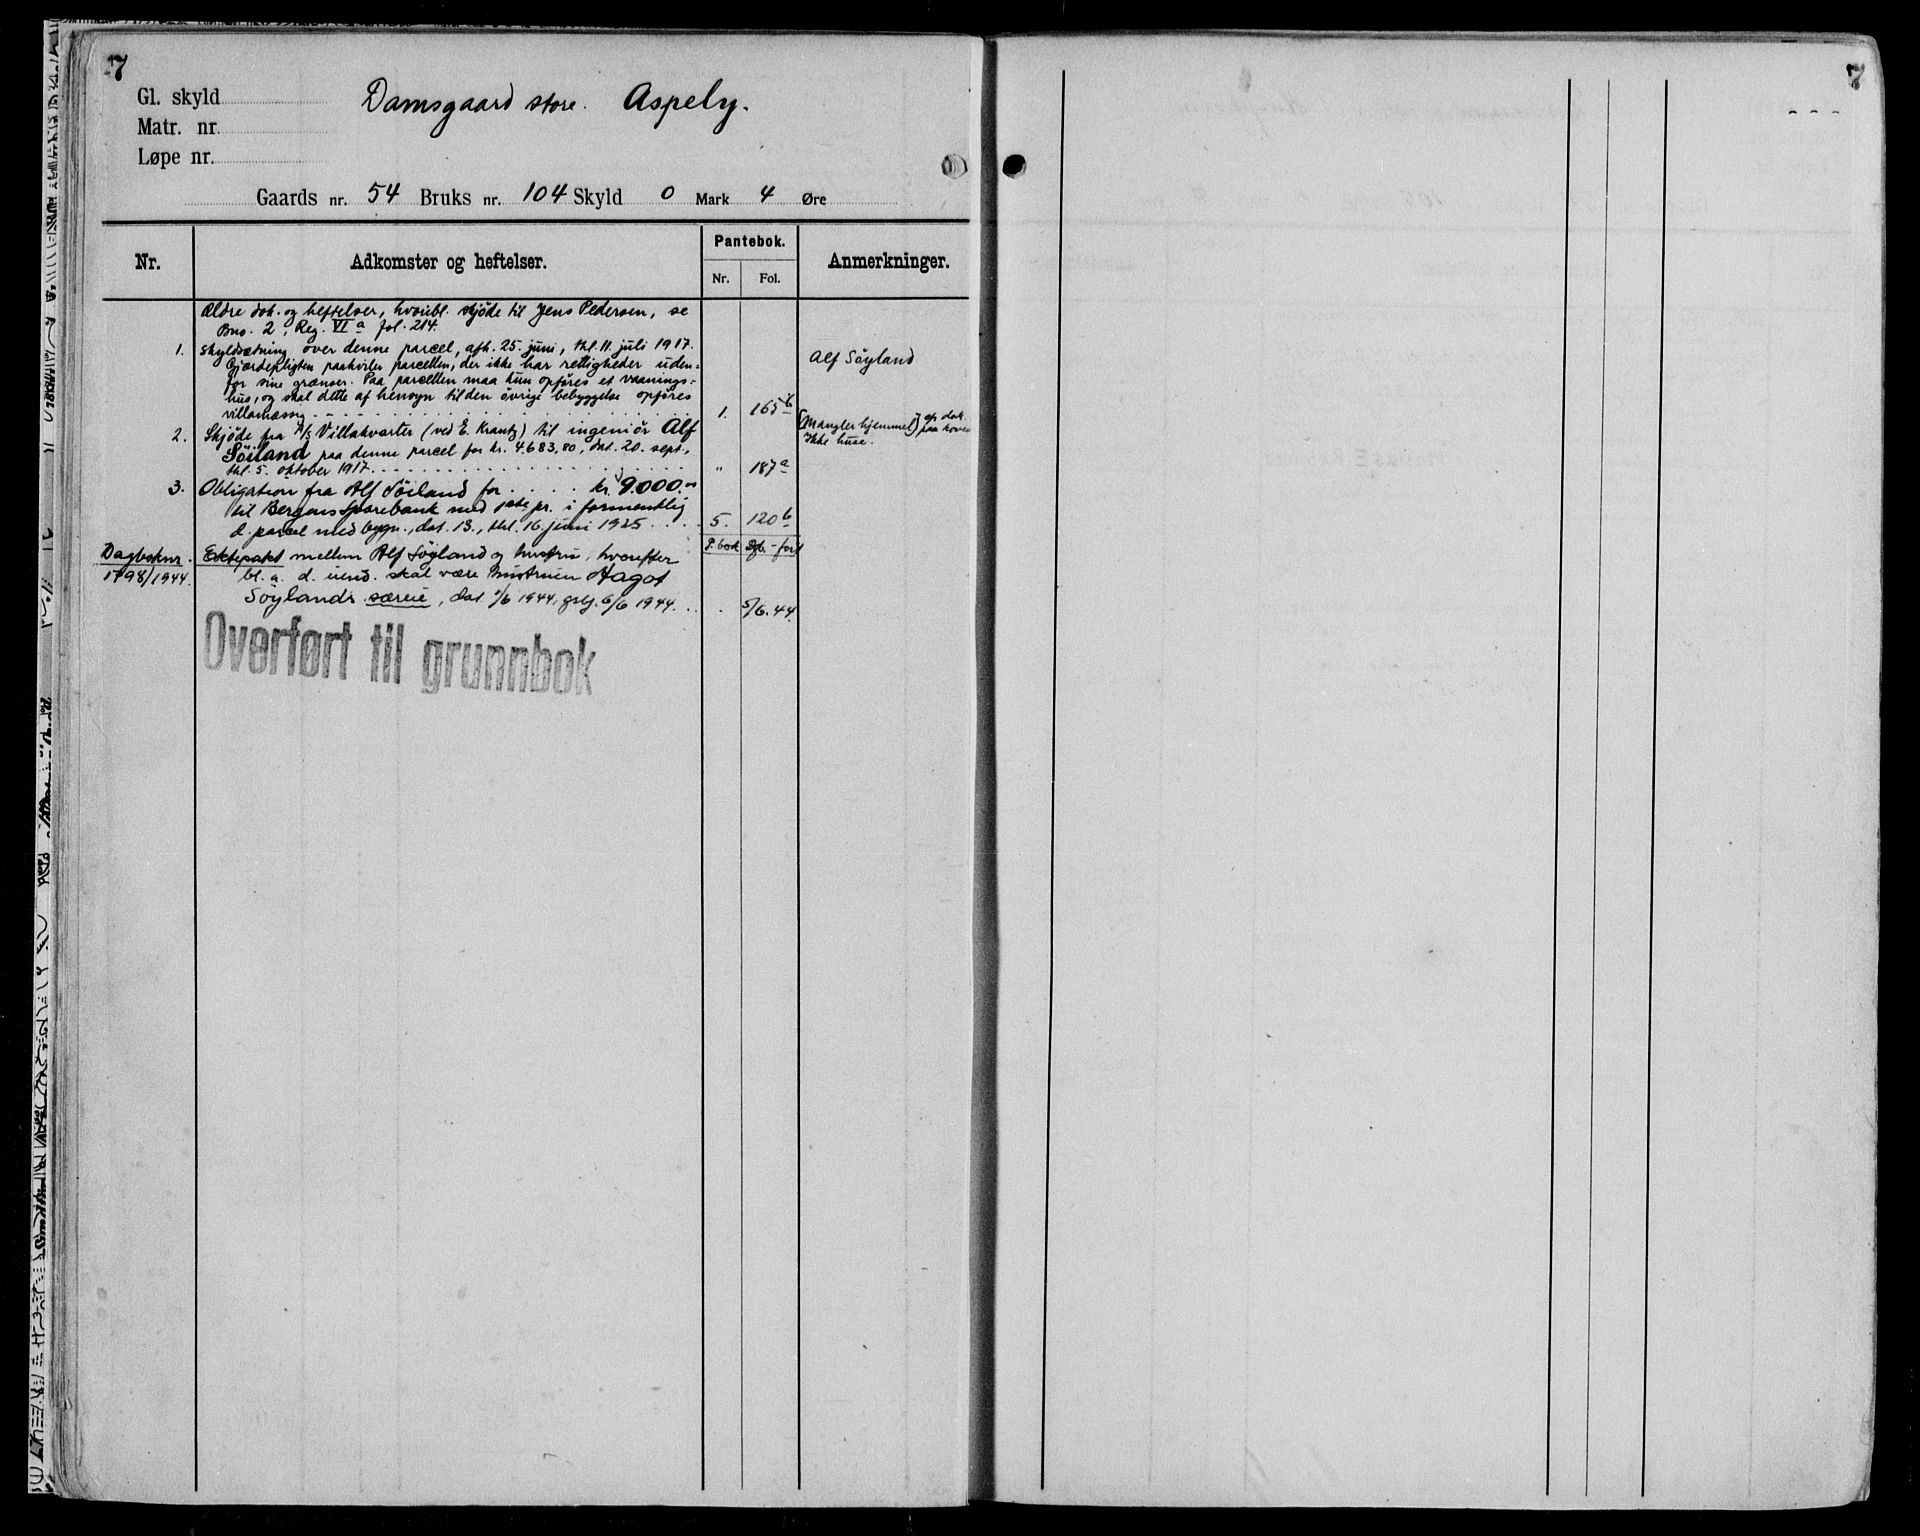 7
7
Gl. skyld
Damsgaard store. Aspely.
Matr. nr.
Løpe nr.
Gaards nr. 54 Bruks nr. 104 Skyld 0 Mark 4 Øre
Nr.
Adkomster og heftelser.
Pantebok.
Nr.
Fol.
Anmerkninger.
Ældre dok. og heftelser, hvoribl. skjøde til Jens Pedersen, se
Bno. 2, Reg. VI a fol. 214.
1. Skyldsætning over denne parcel, afh. 25. juni, thl. 11. juli 1917.
Gjærdepligten paahviler parcellen, der ikke har rettigheder uden-
for sine grænser. Paa parcellen maa kun opføres et vaanings-
hus, og skal dette af hensyn til den övrige bebyggelse opføres
villamæssig 1. 165 b
Alf Söyland
2. Skjøde fra A/S Villakvarter (ved E. Krantz) til ingeniör Alf
Söiland paa denne parcel for kr. 4.683,80, dat. 20. sept.,
thl. 5. oktober 1917. " 187 a
(Mangler hjemmel)
Ikke huse.
3. Obligation fra Alf Söiland for kr. 9.000.00
til Bergens Sparebank med 1ste pr. i formentlig
d. parcel med bygn., dat. 13., thl. 16. juni 1925 5. 120 b
P. bok Db.-ført
Dagboknr. 1798/1944. Ektepakt mellem Alf Söyland og hustru, hvorefter
bl. a. d. eiend. skal være hustruen Hagot
Söylands særeie, dat 1/6 1944, gslj. 6/6 1944. 5/6.44.
Overført til grunnbok